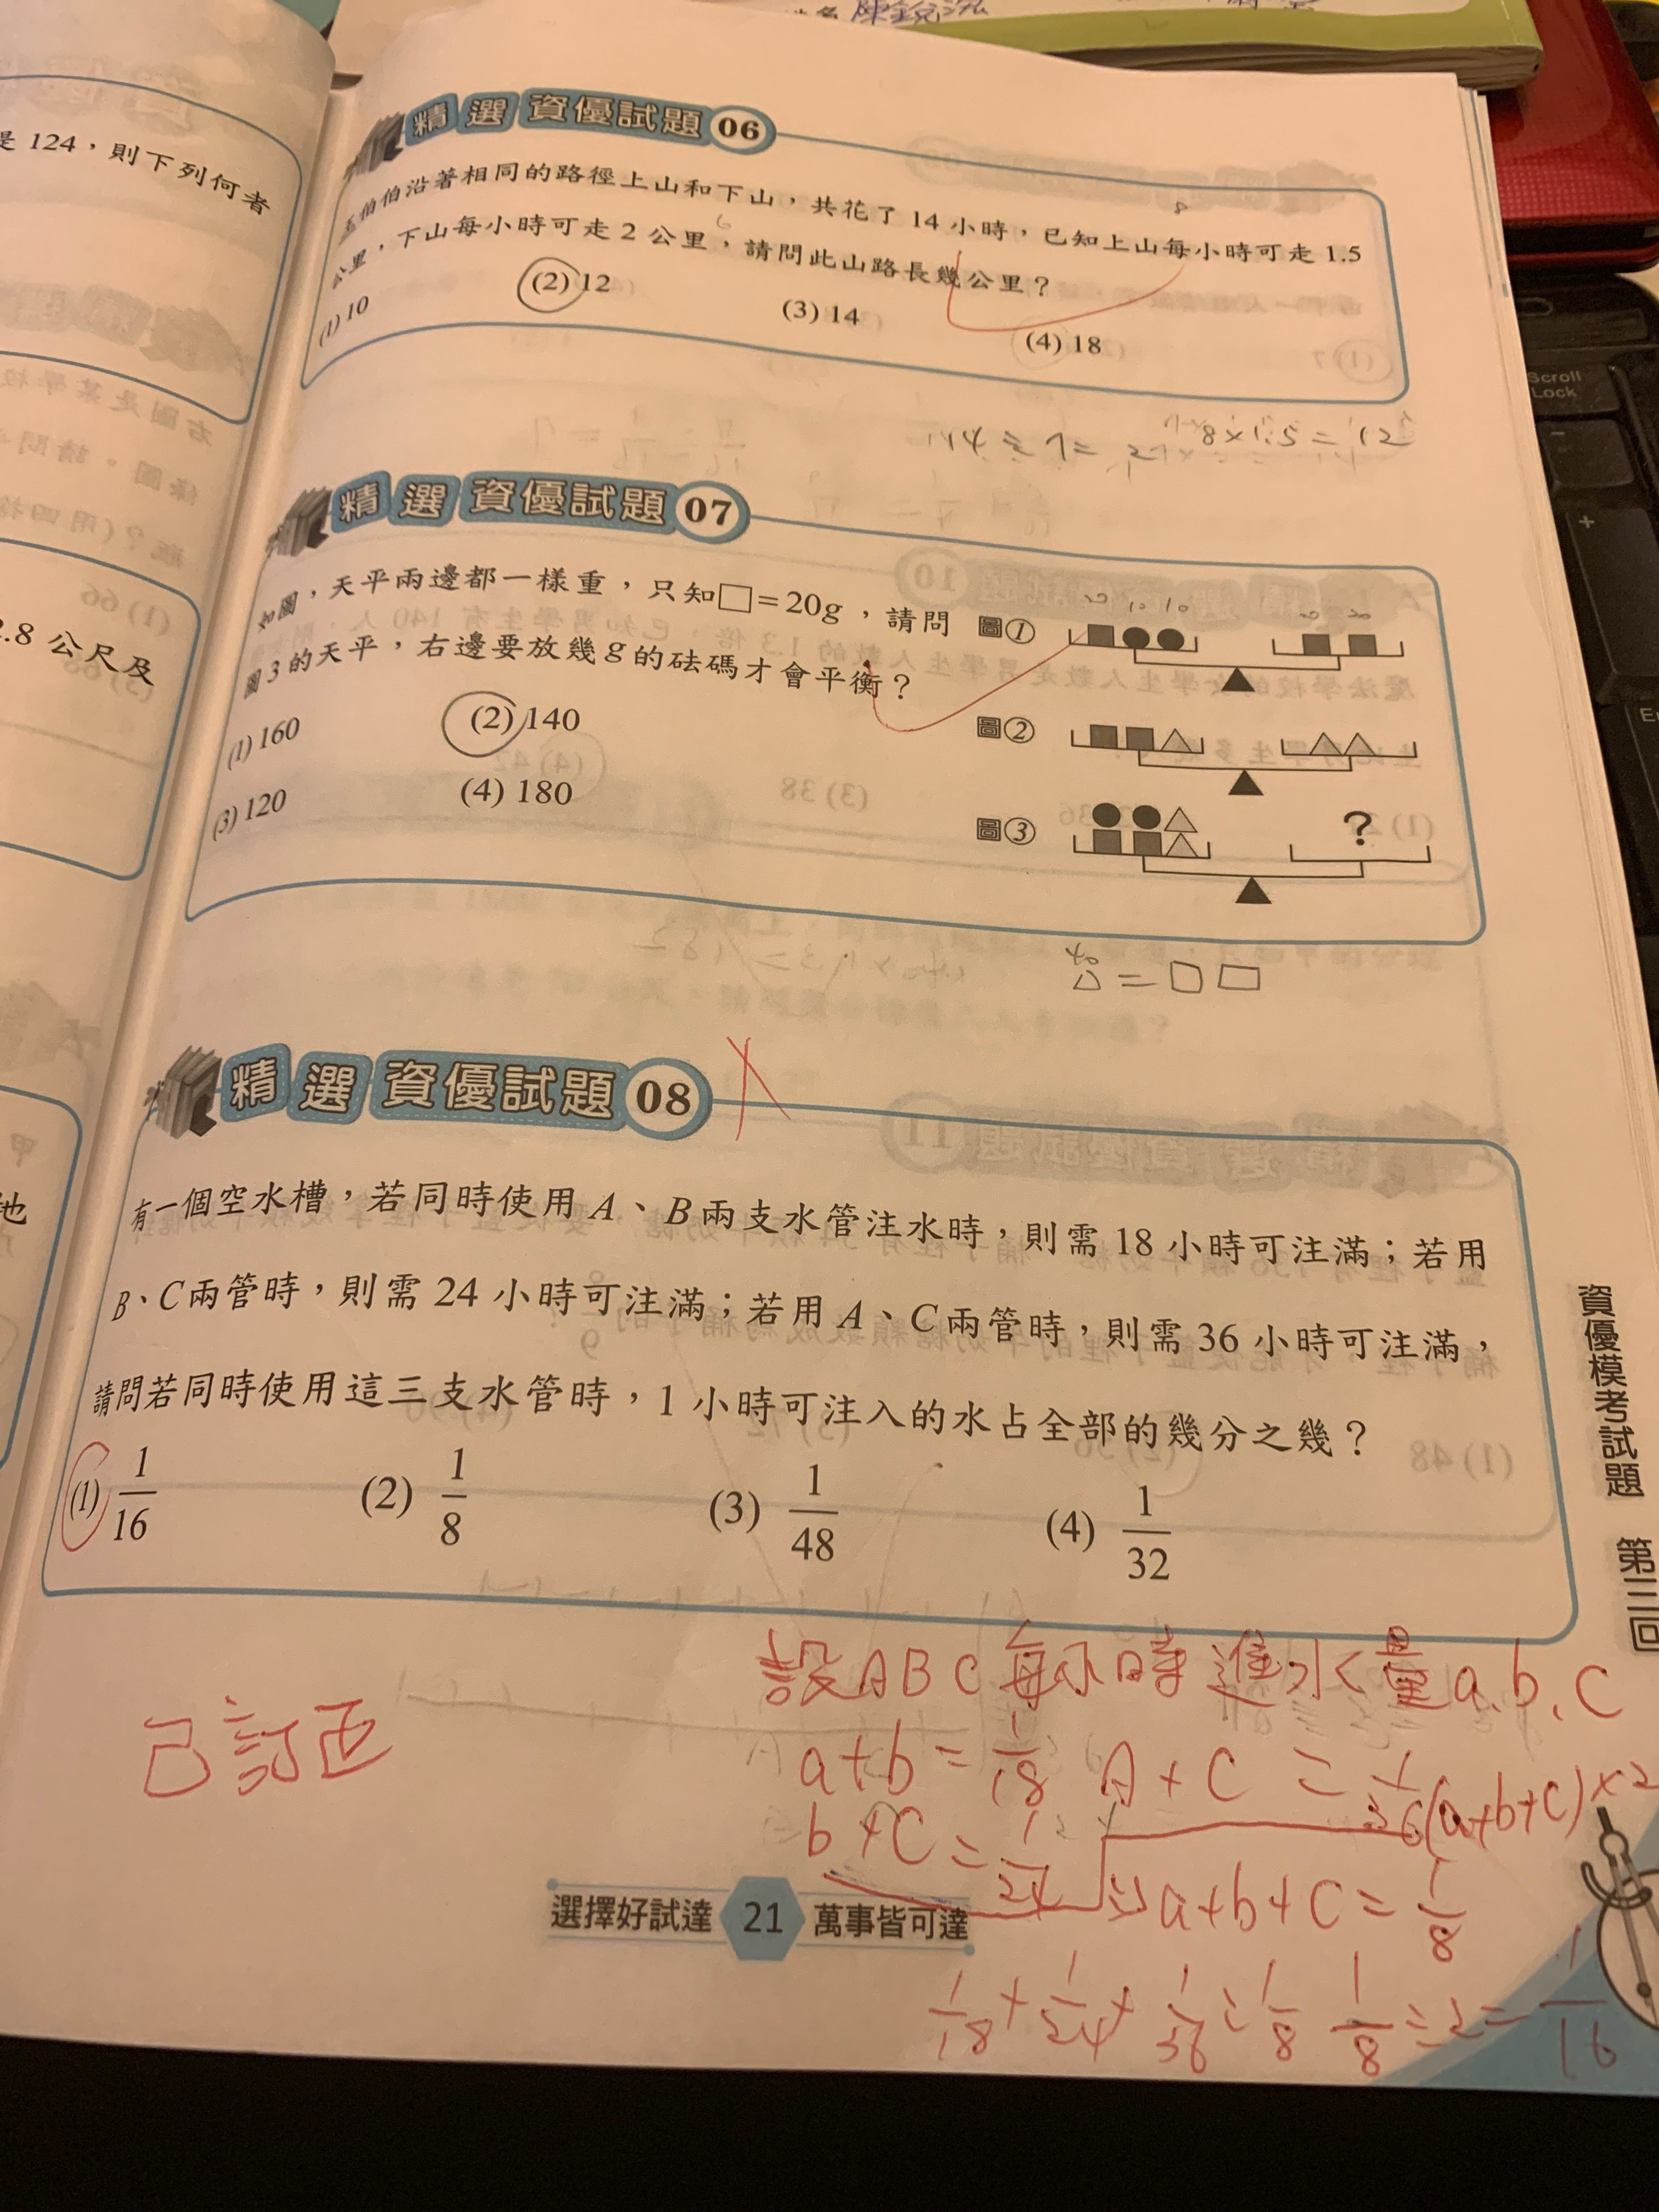 陳銳泓
是 124，則下列何者
2.8 公尺及
地
精選 資優試題 06
王伯伯沿著相同的路徑上山和下山，共花了 14 小時，已知上山每小時可走 1.5
公里，下山每小時可走 2 公里，請問此山路長幾公里？
(1) 10 (2) 12 (3) 14 (4) 18
8
6
8×1.5=12
精選 資優試題 07
如圖，天平兩邊都一樣重，只知□=20g，請問
圖 3 的天平，右邊要放幾 g 的砝碼才會平衡？
(1) 160 (2) 140
(3) 120 (4) 180
圖①
20 10 10 20 20
圖②
圖③ ?
40
△=□□
精選 資優試題 08
有一個空水槽，若同時使用 A、B 兩支水管注水時，則需 18 小時可注滿；若用
B、C 兩管時，則需 24 小時可注滿；若用 A、C 兩管時，則需 36 小時可注滿，
請問若同時使用這三支水管時，1 小時可注入的水占全部的幾分之幾？
(1) 1/16 (2) 1/8 (3) 1/48 (4) 1/32
設ABC每小時進水量a.b.c
已訂正
a+b=1/18 A+C=1/36 (a+b+c)×2
b+C=1/24
a+b+C=1/8
1/18+1/24+1/36=1/8 1/8÷2=1/16
選擇好試達 21 萬事皆可達
資優模考試題 第三回
Scroll
Lock